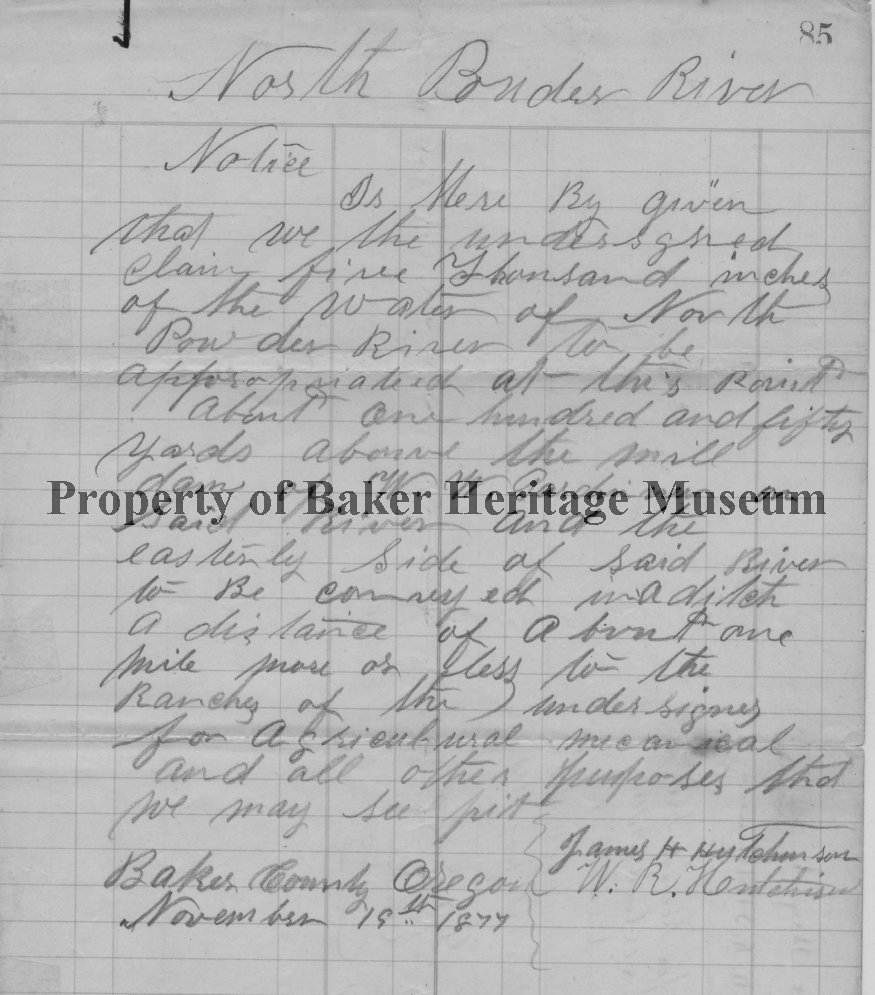 85
North Pouder River
Notice
Is Here By given
that we the undersgned
claim five Thousand inches
of the Water of North
Powder River to be
appropriated at this Point
About One hundred and fifty
yards above the mill
dam of W W on
Property of Baker Heritage Museum
said River and the
easterly side of said River
to Be conveyed in a ditch
A distance of About one
mile more or less to the
Ranches of the undersignes
for Agricultural mecanical
and all other purposes that
we may see fit
James H Hutchinson
W. R. Hutchison
Baker County Oregon
November 19th 1877